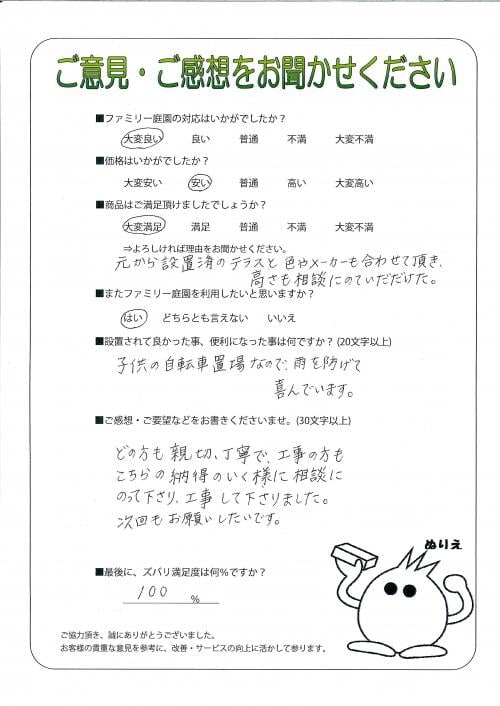 ご意見・ご感想をお聞かせください
■ファミリー庭園の対応はいかがでしたか？
大変良い 良い 普通 不満 大変不満
■価格はいかがでしたか？
大変安い 安い 普通 高い 大変高い
■商品はご満足頂けましたでしょうか？
大変満足 満足 普通 不満 大変不満
⇒よろしければ理由をお聞かせください。
元から設置済のテラスと色やメーカーも合わせて頂き、
高さも相談にのていだだけた。
■またファミリー庭園を利用したいと思いますか？
はい どちらとも言えない いいえ
■設置されて良かった事、便利になった事は何ですか？(20文字以上)
子供の自転車置場なので、雨を防げて
喜んでいます。
■ご感想・ご要望などをお書きくださいませ。(30文字以上)
どの方も親切、丁寧で、工事の方も
こちらの納得のいく様に相談に
のって下さり、工事して下さりました。
次回もお願いしたいです。
ぬりえ
■最後に、ズバリ満足度は何％ですか？
100 ％
ご協力頂き、誠にありがとうございました。
お客様の貴重な意見を参考に、改善・サービスの向上に活かして参ります。